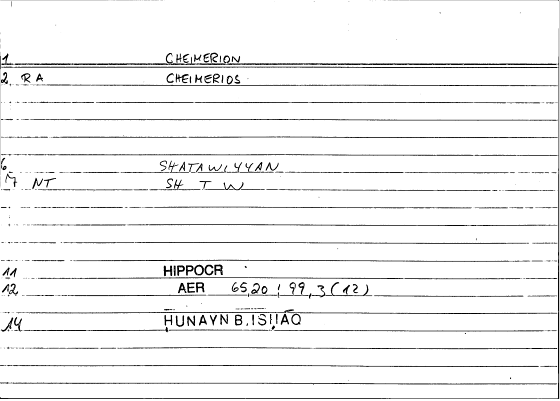 1 CHEIMERION
2 RA CHEIMERIOS
6 SHATAWIYYAN
7 NT SH T W
11 HIPPOCR
12 AER 65,20 ; 99,3 (12)
14 ḤUNAYN B. ISḤĀQ